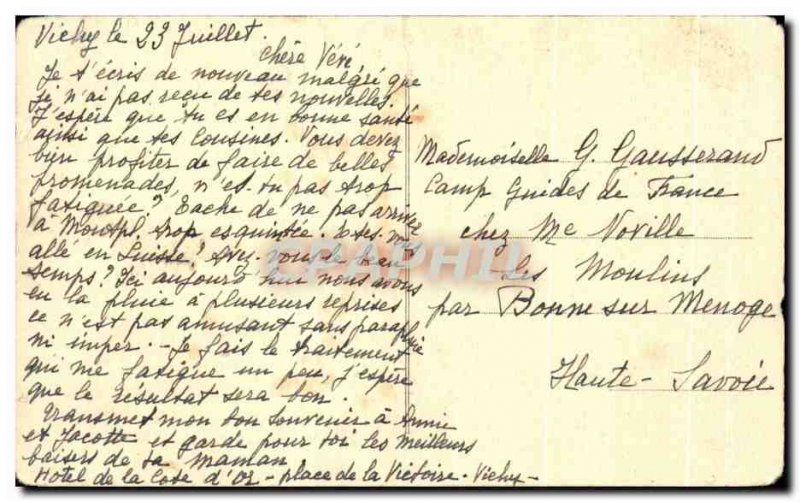 Vichy le 23 Juillet.
Chère Véré,
Je t'écris de nouveau malgré que
je n'ai pas reçu de tes nouvelles.
J'espère que tu es en bonne santé
ainsi que tes Cousines. Vous devez
bien profiter de faire de belles
promenades, n'es-tu pas trop
fatiguée? Tache de ne pas arriver
à Montpl. trop esquintée. Etes-vous
allé en Suisse? Avez-vous le beau
temps? Ici aujourd'hui nous avons
eu la pluie à plusieurs reprises
ce n'est pas amusant sans parapluie
ni imper. - Je fais le traitement
qui me fatigue un peu, j'espère
que le résultat sera bon.
Transmet mon bon souvenir à Annie
et Jacotte et garde pour toi les meilleurs
baisers de ta Maman
Hôtel de la Cote d'Or - place de la Victoire - Vichy -
Mademoiselle G. Gausserand
Camp Guides de France
chez Mc Noville
Les Moulins
par Bonne sur Menoge
Haute-Savoie
CPAPHIL